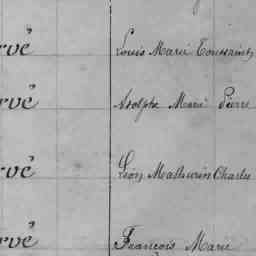 rvé Louis Marie Toussaint
rvé Adolphe Marie Pierre
rvé Léon Mathurin Charles
rvé François Marie